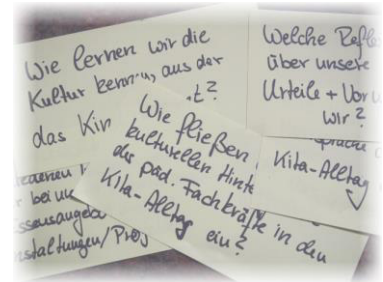 Wie lernen wir die
Kultur kennen, aus der
das Kin t?
Welche Refle
über unsere
Urteile + Voru
wir?
Wie fließen
kulturellen Hinte
der päd. Fachkräfte in den
Kita-Alltag ein?
Kita-Alltag
bei un
issensangebo
nstaltungen/Proj